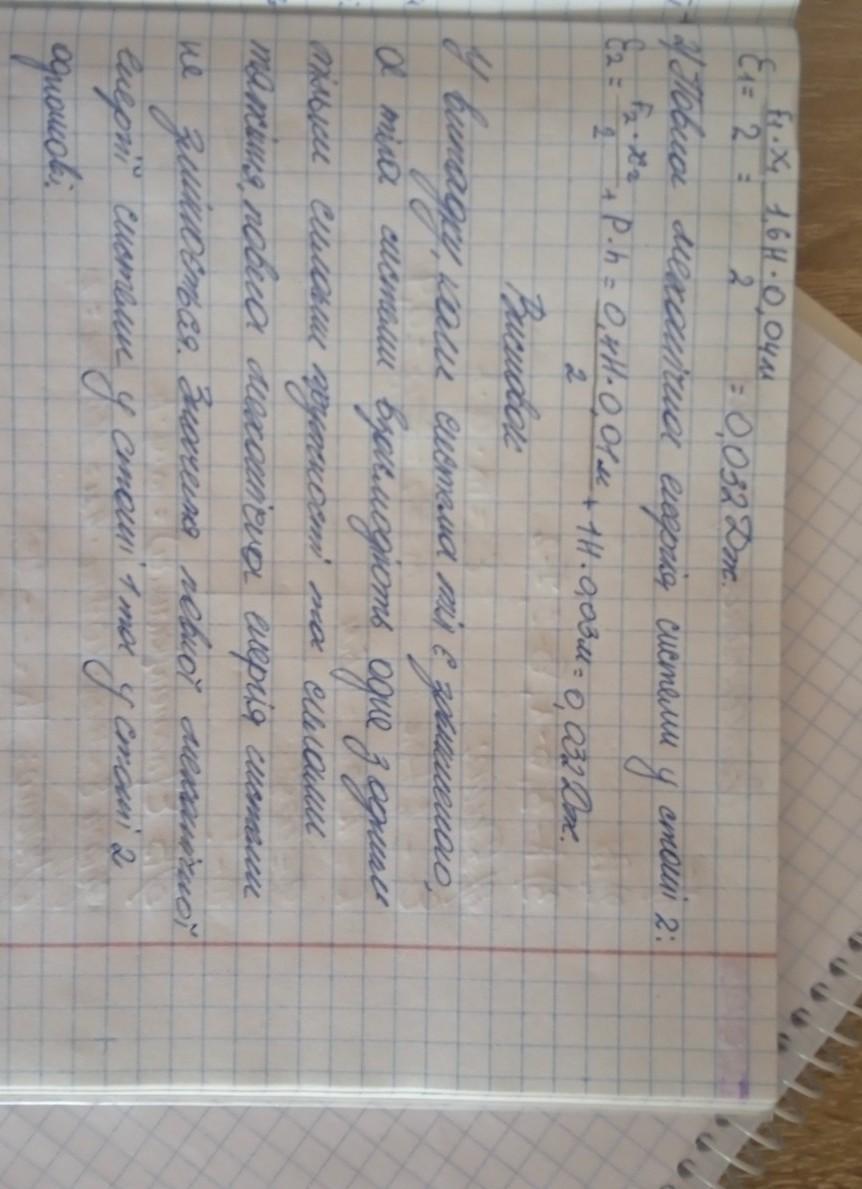 E₁ = F₁·x₁/2 = 1,6Н·0,04м/2 = 0,032Дж.
2) Повна механічна енергія системи у стані 2:
E₂ = F₂·x₂/2 + P·h = 0,4Н·0,01м/2 + 1Н·0,03м = 0,032Дж.
Висновок
У випадку, коли система тіл є замкненою,
а тіла системи взаємодіють одне з одним
тільки силами пружності та силами
тяжіння, повна механічна енергія системи
не змінюється. Значення повної механічної
енергії системи у стані 1 та у стані 2
однакові.